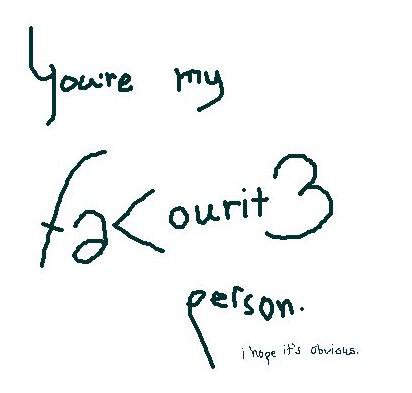 You're my
fa<ourit3
person.
i hope it's obvious.